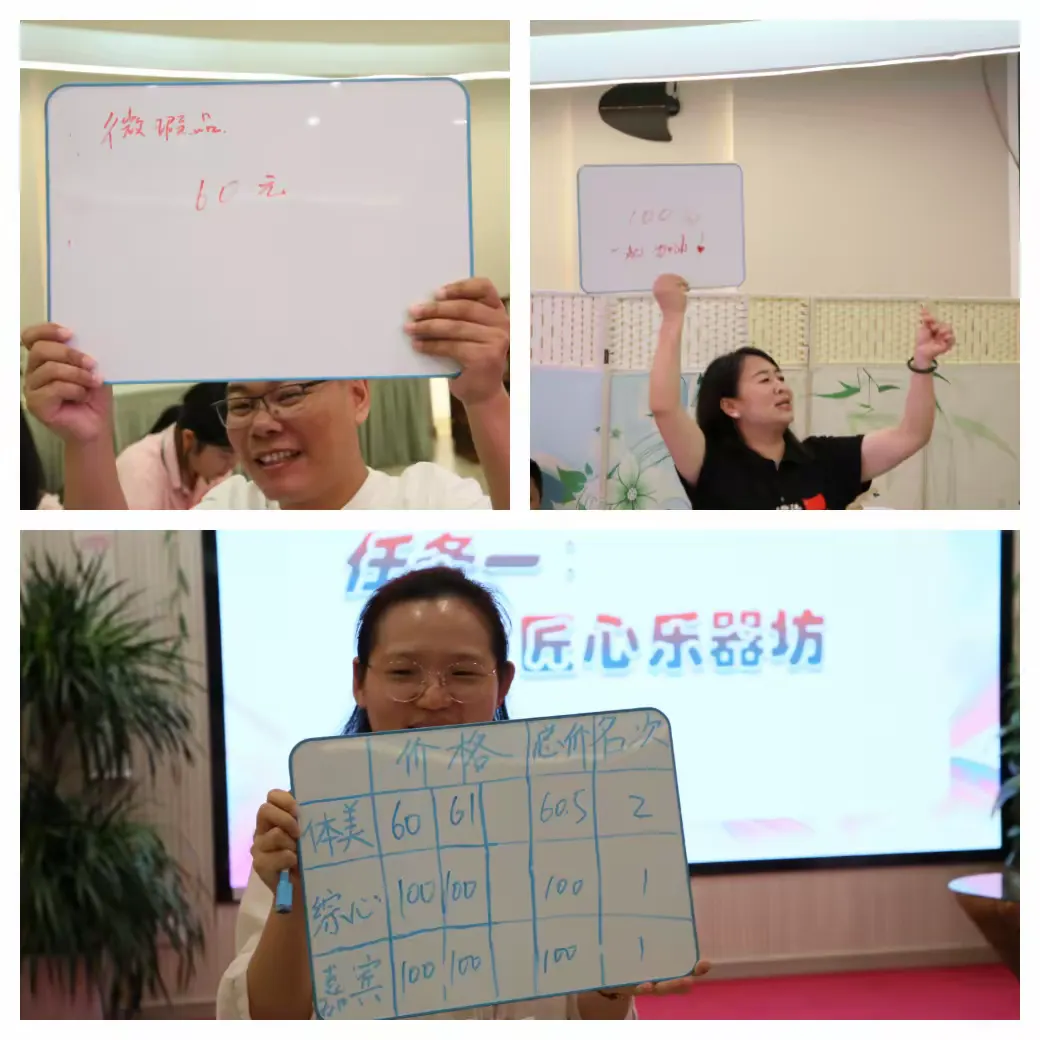 微瑕品
60元
100元
任务一：
匠心乐器坊
价格 总价 名次
体美 60 61 60.5 2
综心 100 100 100 1
嘉宾 100 100 100 1